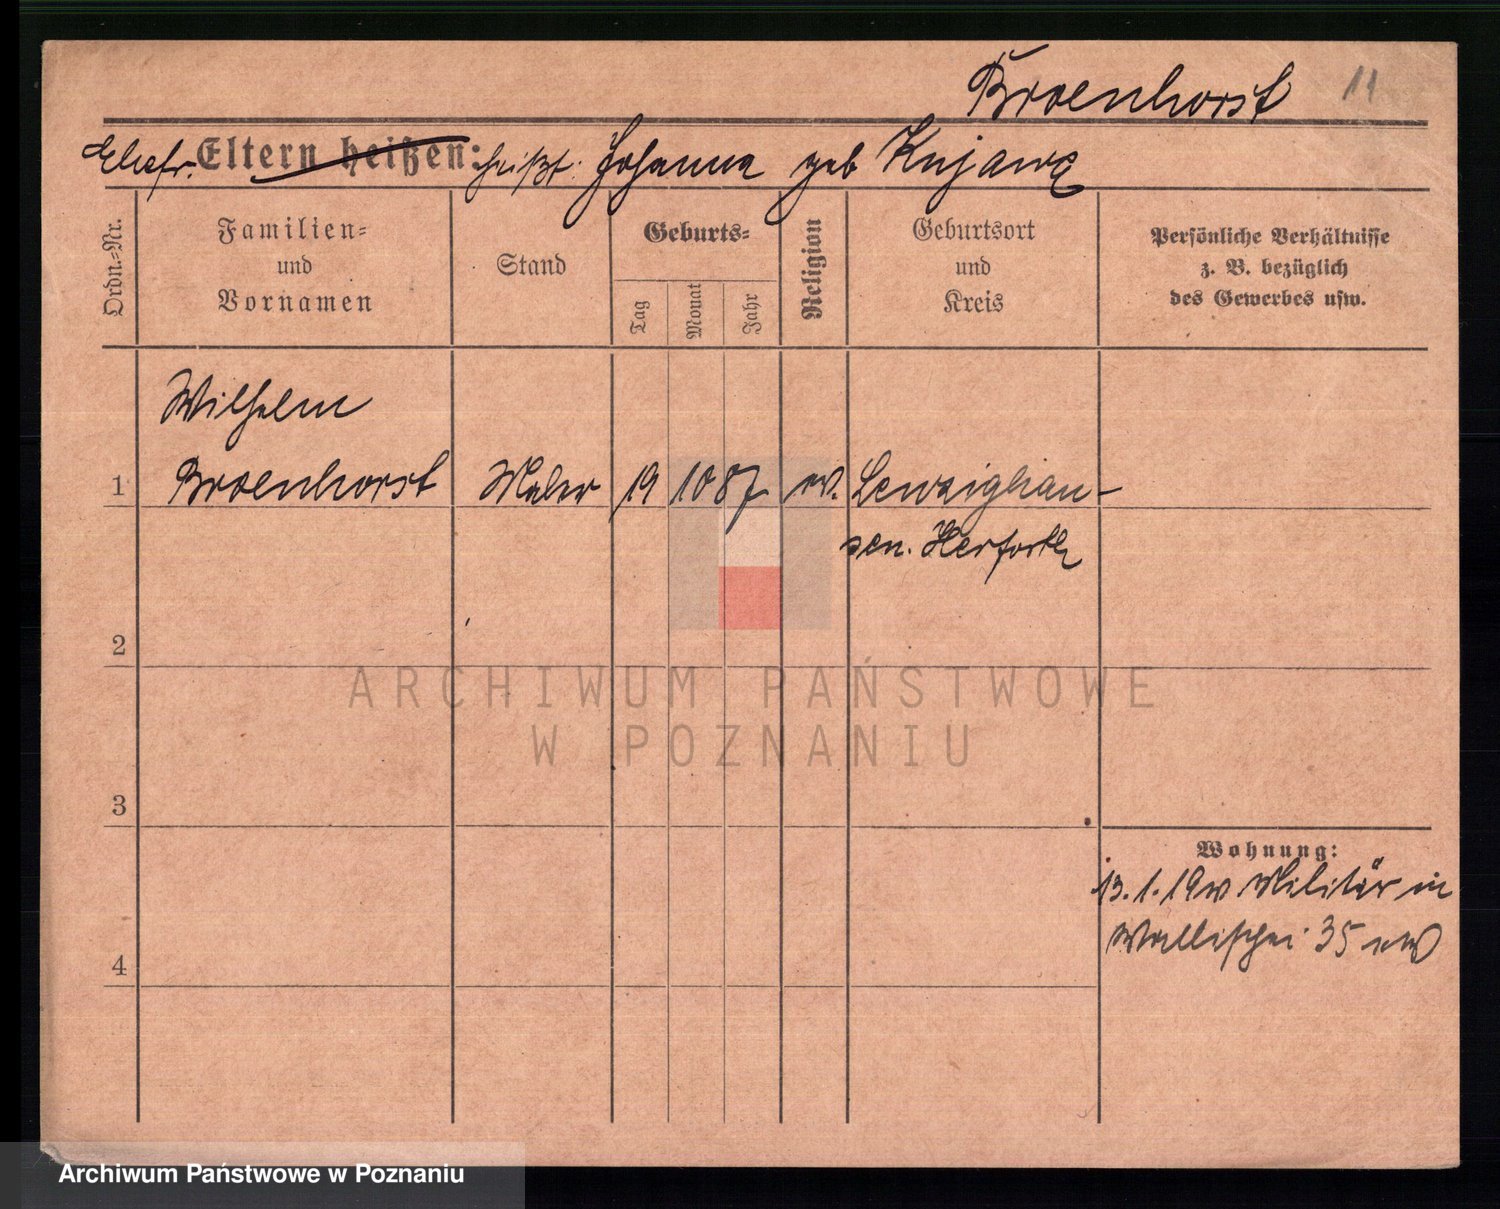 Broenhorst 11
Ehefr. Eltern heißen: heißt: Johanna geb Kujawa
Ordn.-Nr.
Familien-
und
Vornamen
Stand
Geburts-
Tag
Monat
Jahr
Religion
Geburtsort
und
Kreis
Persönliche Verhältnisse
z. B. bezüglich
des Gewerbes usw.
Wilhelm
1 Broenhorst Maler 19 10 87 ev. Lenzighau-
sen. Herforth
2
ARCHIWUM PAŃSTWOWE
W POZNANIU
3
Wohnung:
13.1.19 v Militär in
Wallischei 35
4
Archiwum Państwowe w Poznaniu